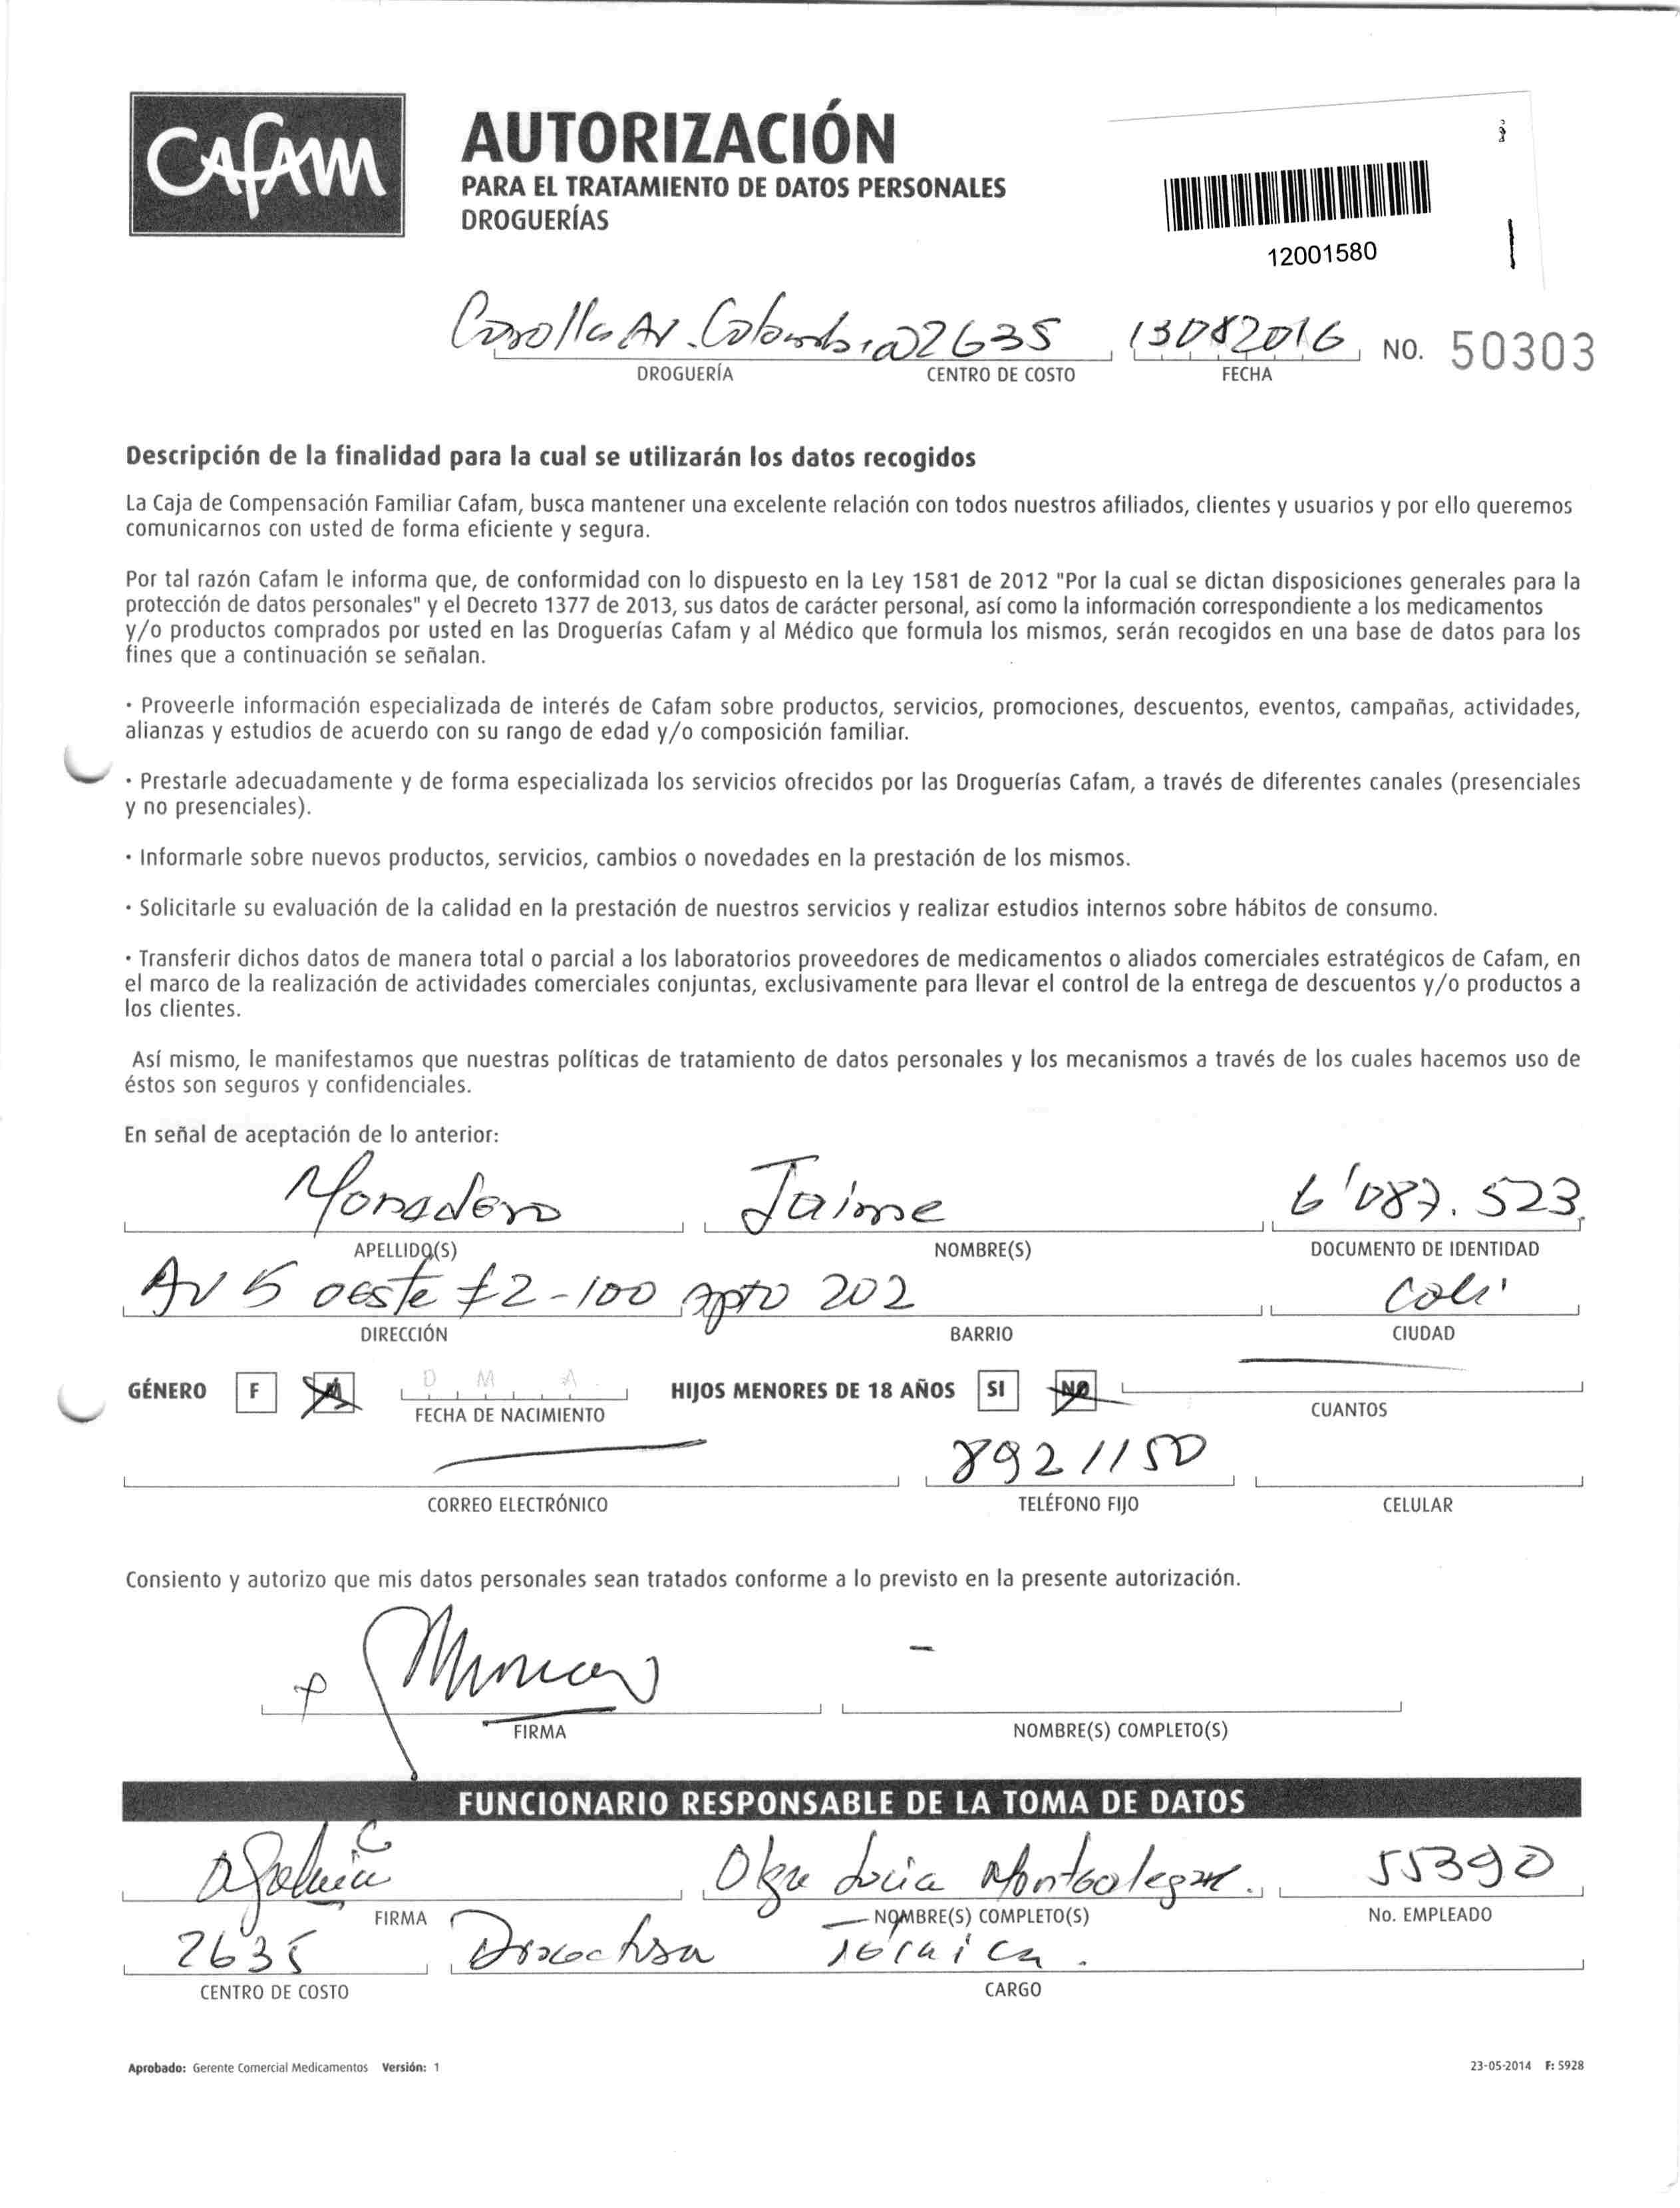 CAFAM
AUTORIZACIÓN
PARA EL TRATAMIENTO DE DATOS PERSONALES
DROGUERÍAS
12001580
Av. Colombia 2635 13082016 NO. 50303
DROGUERÍA CENTRO DE COSTO FECHA
Descripción de la finalidad para la cual se utilizarán los datos recogidos
La Caja de Compensación Familiar Cafam, busca mantener una excelente relación con todos nuestros afiliados, clientes y usuarios y por ello queremos
comunicarnos con usted de forma eficiente y segura.
Por tal razón Cafam le informa que, de conformidad con lo dispuesto en la Ley 1581 de 2012 "Por la cual se dictan disposiciones generales para la
protección de datos personales" y el Decreto 1377 de 2013, sus datos de carácter personal, así como la información correspondiente a los medicamentos
y/o productos comprados por usted en las Droguerías Cafam y al Médico que formula los mismos, serán recogidos en una base de datos para los
fines que a continuación se señalan.
· Proveerle información especializada de interés de Cafam sobre productos, servicios, promociones, descuentos, eventos, campañas, actividades,
alianzas y estudios de acuerdo con su rango de edad y/o composición familiar.
· Prestarle adecuadamente y de forma especializada los servicios ofrecidos por las Droguerías Cafam, a través de diferentes canales (presenciales
y no presenciales).
· Informarle sobre nuevos productos, servicios, cambios o novedades en la prestación de los mismos.
· Solicitarle su evaluación de la calidad en la prestación de nuestros servicios y realizar estudios internos sobre hábitos de consumo.
· Transferir dichos datos de manera total o parcial a los laboratorios proveedores de medicamentos o aliados comerciales estratégicos de Cafam, en
el marco de la realización de actividades comerciales conjuntas, exclusivamente para llevar el control de la entrega de descuentos y/o productos a
los clientes.
Así mismo, le manifestamos que nuestras políticas de tratamiento de datos personales y los mecanismos a través de los cuales hacemos uso de
éstos son seguros y confidenciales.
En señal de aceptación de lo anterior:
Jaime 6'087.523
APELLIDO(S) NOMBRE(S) DOCUMENTO DE IDENTIDAD
AV 5 oeste #2-100 apto 202 Cali
DIRECCIÓN BARRIO CIUDAD
GÉNERO F M D M A HIJOS MENORES DE 18 AÑOS SI NO
FECHA DE NACIMIENTO CUANTOS
8921150
CORREO ELECTRÓNICO TELÉFONO FIJO CELULAR
Consiento y autorizo que mis datos personales sean tratados conforme a lo previsto en la presente autorización.
FIRMA NOMBRE(S) COMPLETO(S)
FUNCIONARIO RESPONSABLE DE LA TOMA DE DATOS
Olga Lucia Montealegre. 55390
FIRMA NOMBRE(S) COMPLETO(S) No. EMPLEADO
2635 Técnica.
CENTRO DE COSTO CARGO
Aprobado: Gerente Comercial Medicamentos Versión: 1 23-05-2014 F: 5928